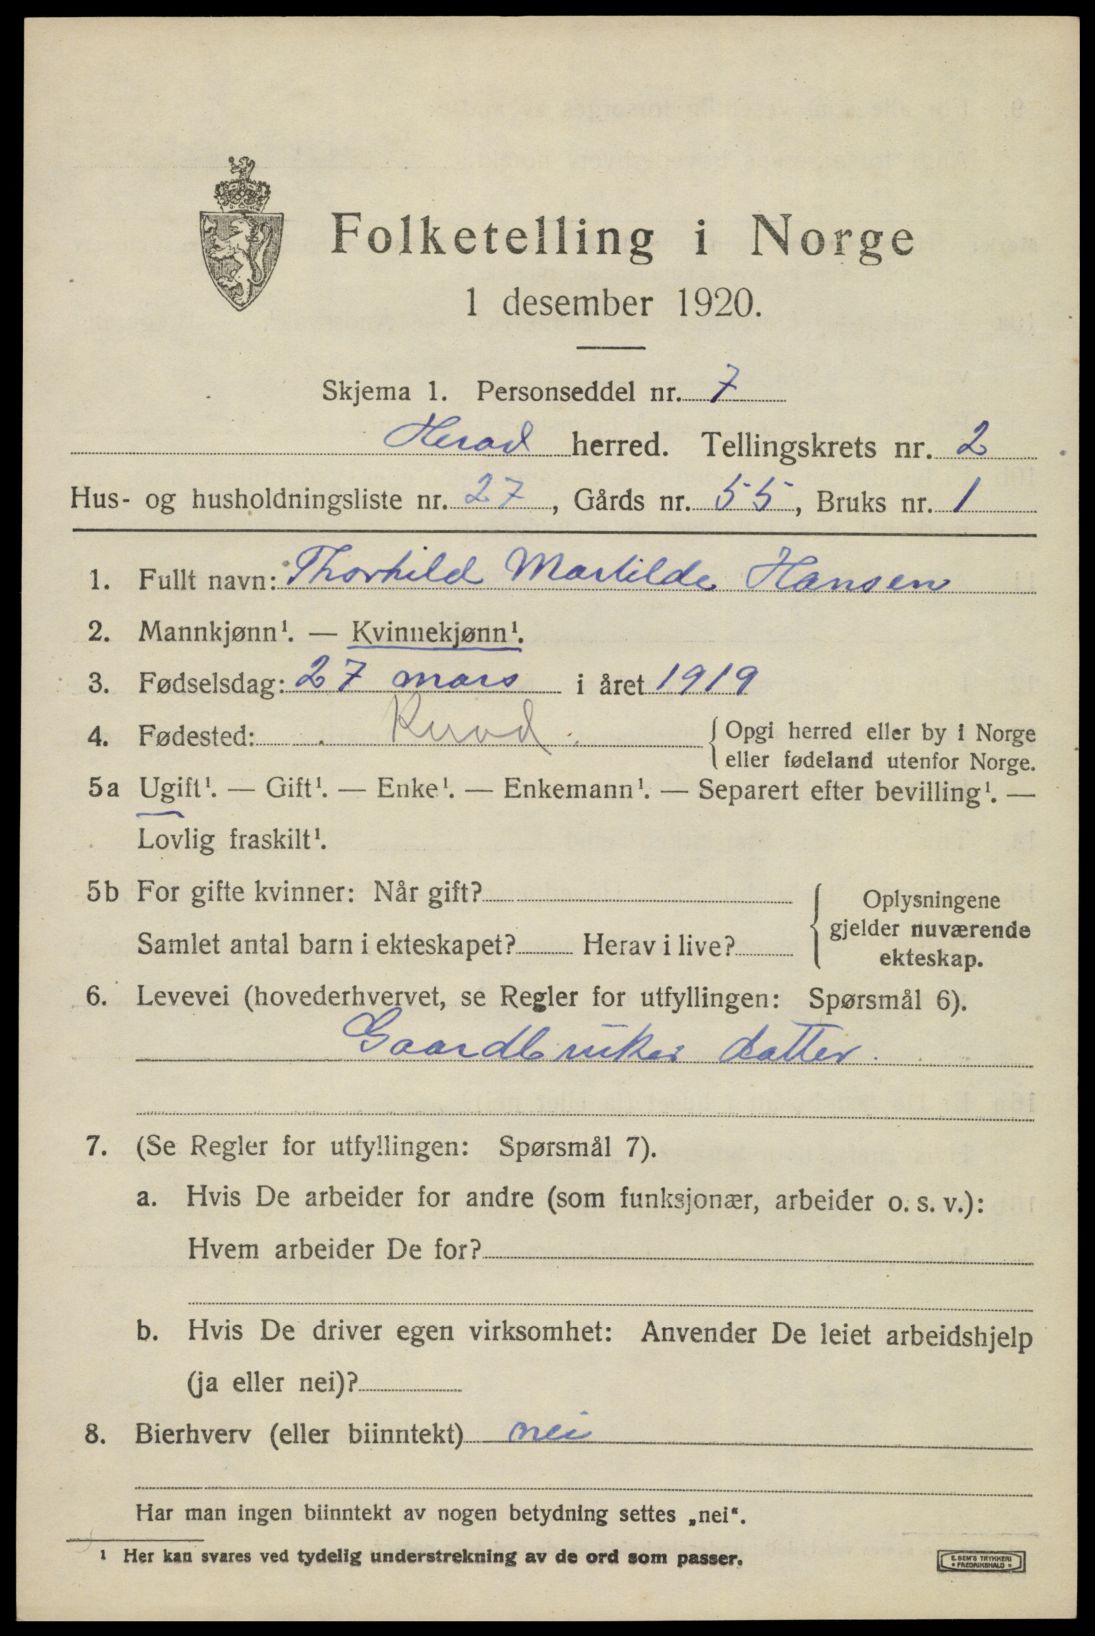 Folketelling i Norge
1 desember 1920.
Skjema 1. Personseddel nr. 7
Herad herred. Tellingskrets nr. 2
Hus- og husholdningsliste nr. 27, Gårds nr. 55, Bruks nr. 1
1. Fullt navn: Thorhild Martilde Hansen
2. Mannkjønn¹. — Kvinnekjønn¹.
3. Fødselsdag: 27 mars i året 1919
4. Fødested: { Opgi herred eller by i Norge
eller fødeland utenfor Norge.
5a Ugift¹. — Gift¹. — Enke¹. — Enkemann¹. — Separert efter bevilling¹. —
Lovlig fraskilt¹.
5b For gifte kvinner: Når gift?
Samlet antal barn i ekteskapet? Herav i live?
{ Oplysningene
gjelder nuværende
ekteskap.
6. Levevei (hovederhvervet, se Regler for utfyllingen: Spørsmål 6).
Gaardbruker datter.
7. (Se Regler for utfyllingen: Spørsmål 7).
a. Hvis De arbeider for andre (som funksjonær, arbeider o. s. v.):
Hvem arbeider De for?
b. Hvis De driver egen virksomhet: Anvender De leiet arbeidshjelp
(ja eller nei)?
8. Bierhverv (eller biinntekt) nei
Har man ingen biinntekt av nogen betydning settes „nei“.
¹ Her kan svares ved tydelig understrekning av de ord som passer.
E. SEM'S TRYKKERI
* FREDRIKSHALD *